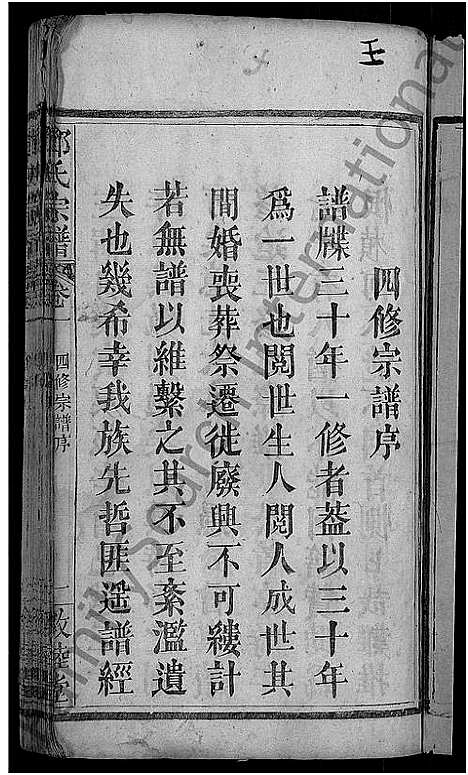 王
四修宗譜序
譜牒三十年一修者葢以三十年
爲一世也閲世生人閲人成世共
間婚喪葬祭遷徙廢興不可縷計
若無譜以維繫之其不至紊濫遺
失也幾希幸我族先哲匪遥譜經
氏宗譜
卷一
四修宗譜序
一
敦睦堂
Family Source International